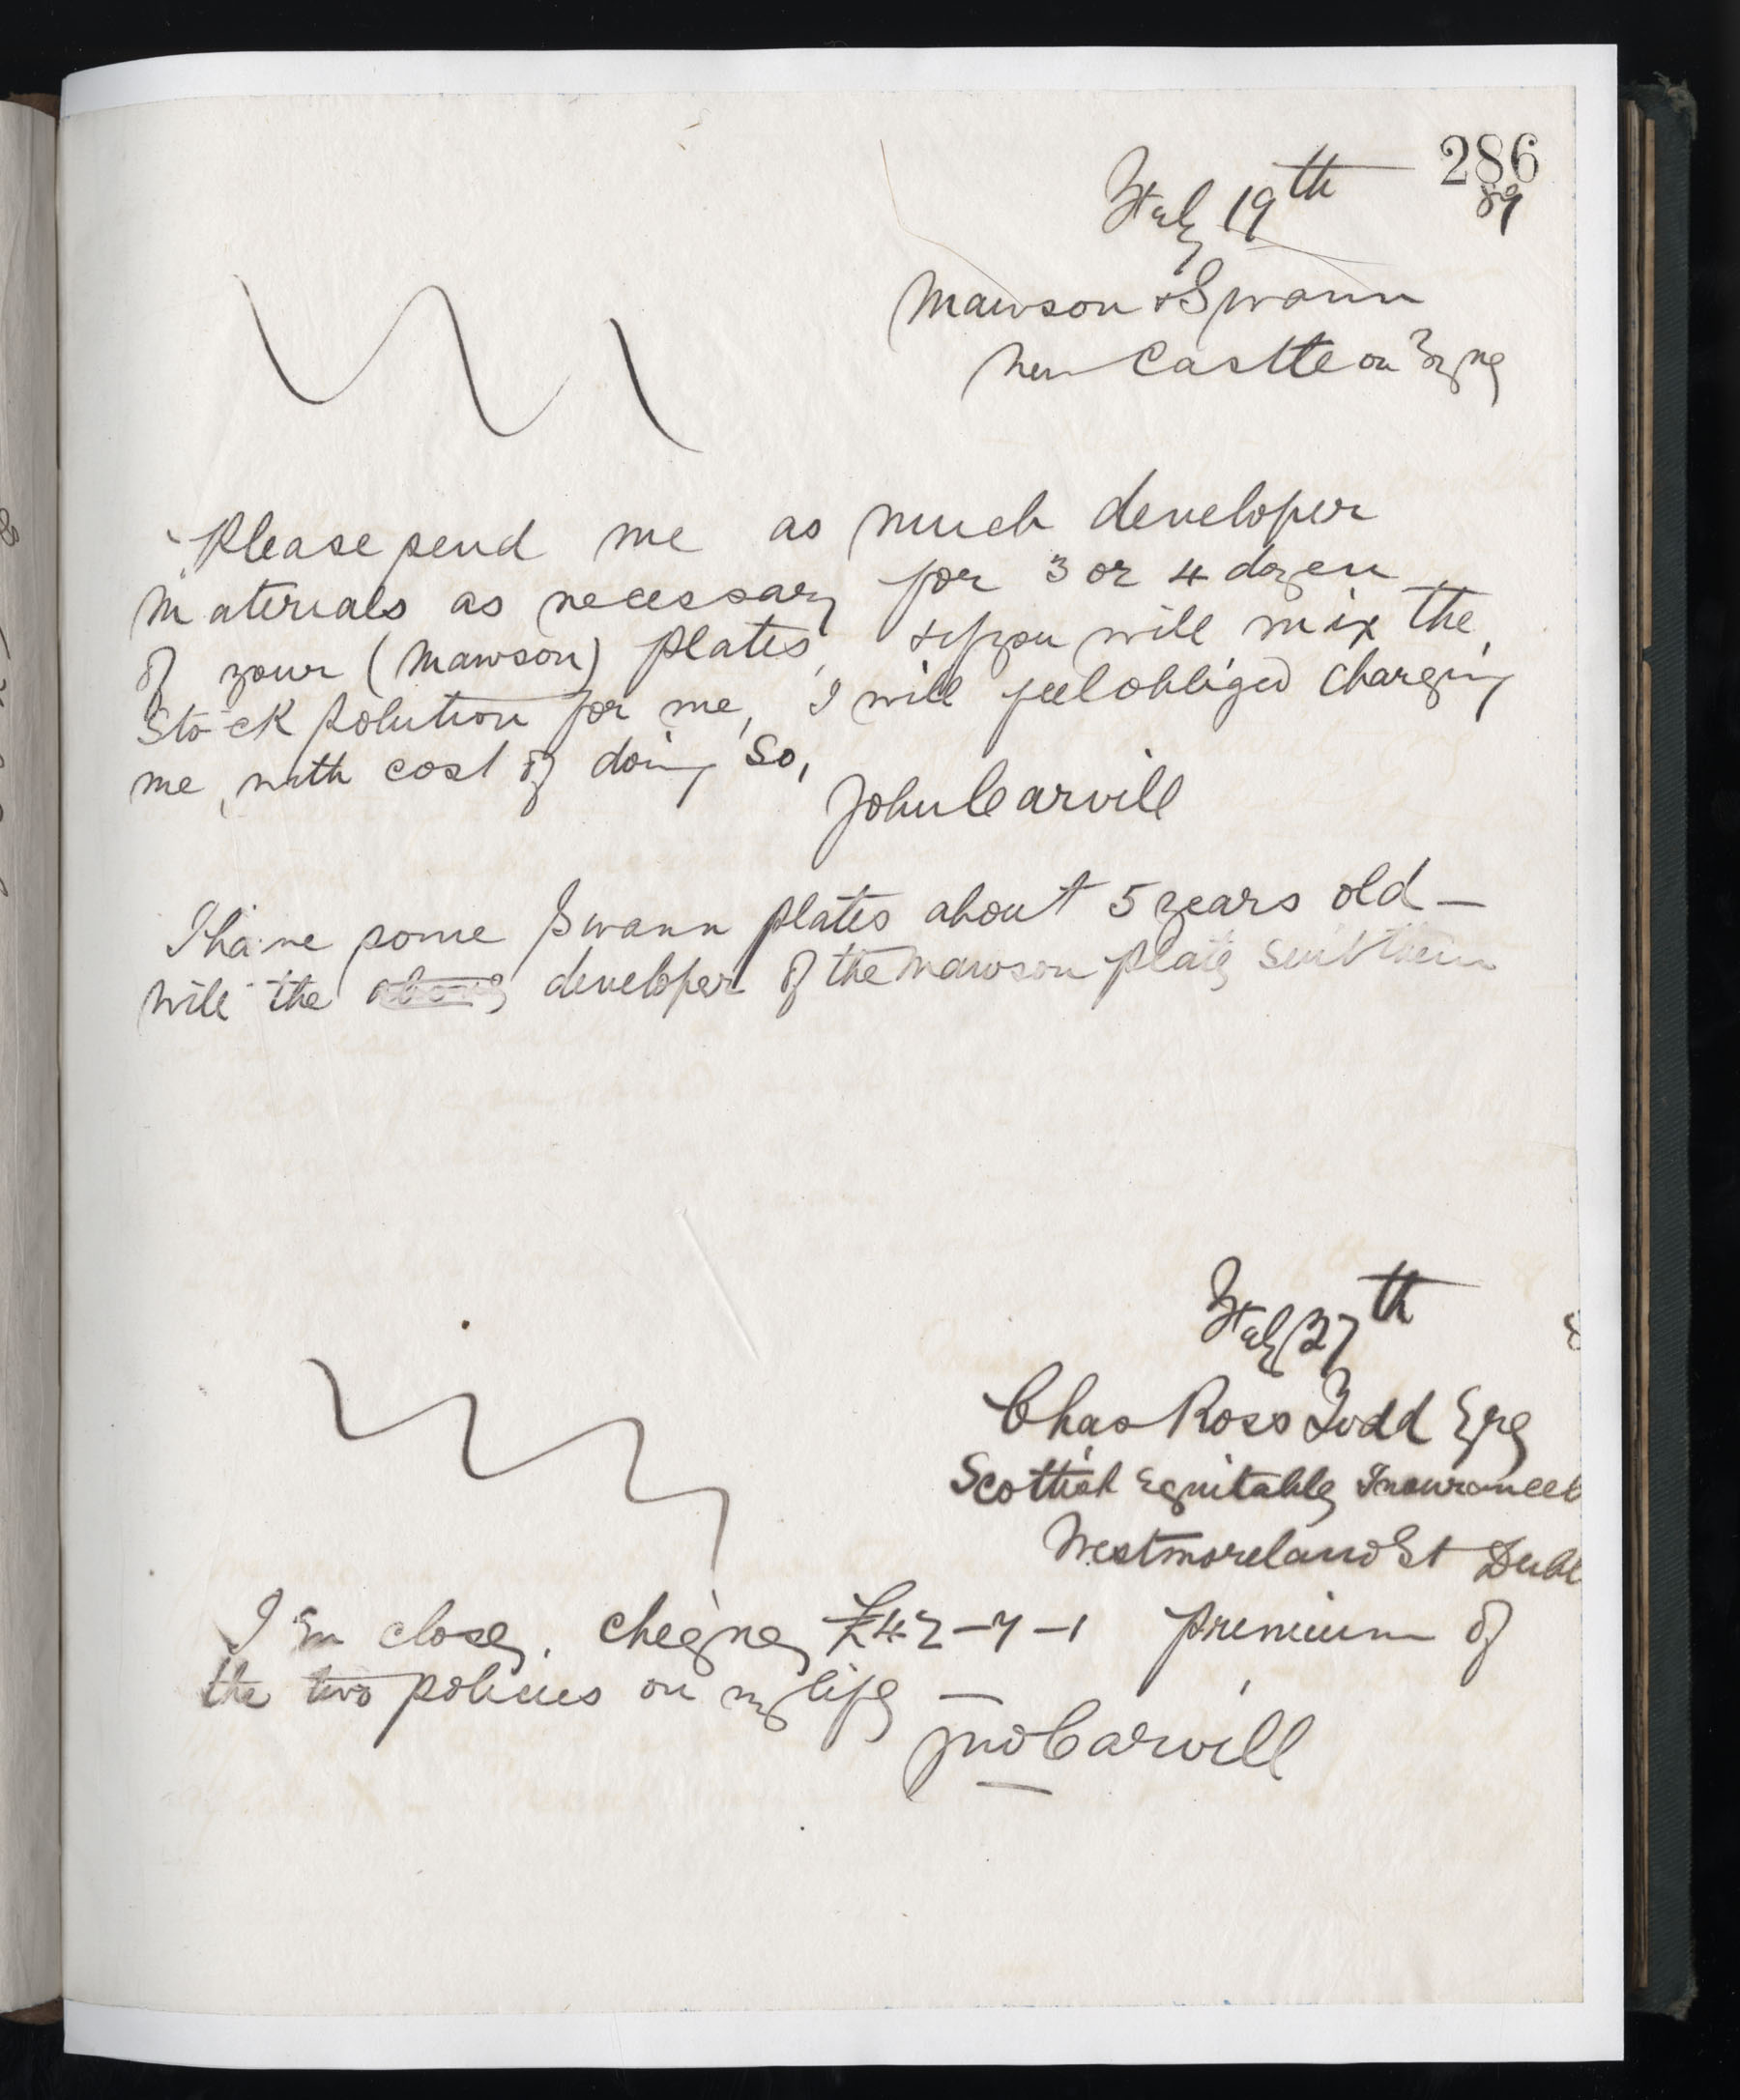 286
Feby 19th 89
Mawson & Swann
New Castle on Tyne
Please send me as much developer
materials as necessary for 3 or 4 dozen
of your (Mawson) plates, & if you will mix the
Stock solution for me, I will feel obliged charging
me, with cost of doing so,
John Carvill
I have some Swann plates about 5 years old —
will the above developer of the Mawson plate suit them
Feby 27th 8
Chas Ross Todd Esq
Scottish Equitable Insurance C
Westmoreland St Dubl
I En close, cheque £42-7-1 premium of
the two policies on my life —
Jno Carvill